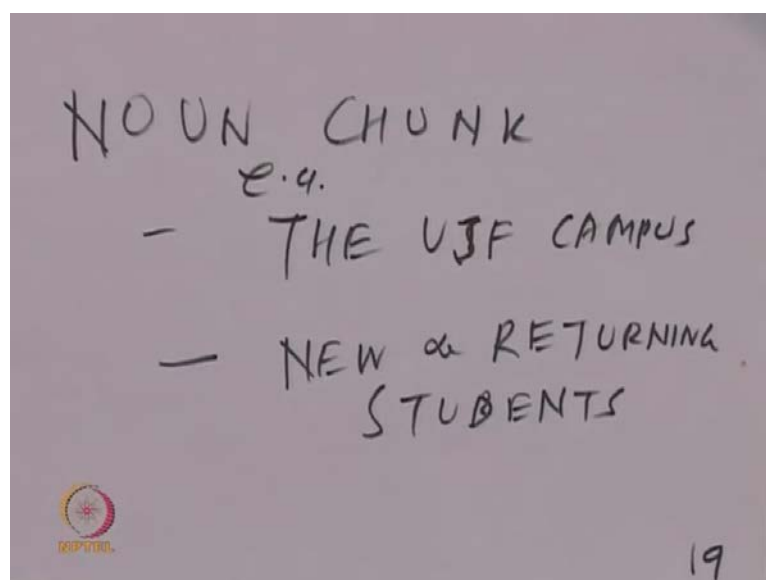 NOUN CHUNK
e.g.
- THE UJF CAMPUS
- NEW & RETURNING
STUDENTS
NPTEL
19